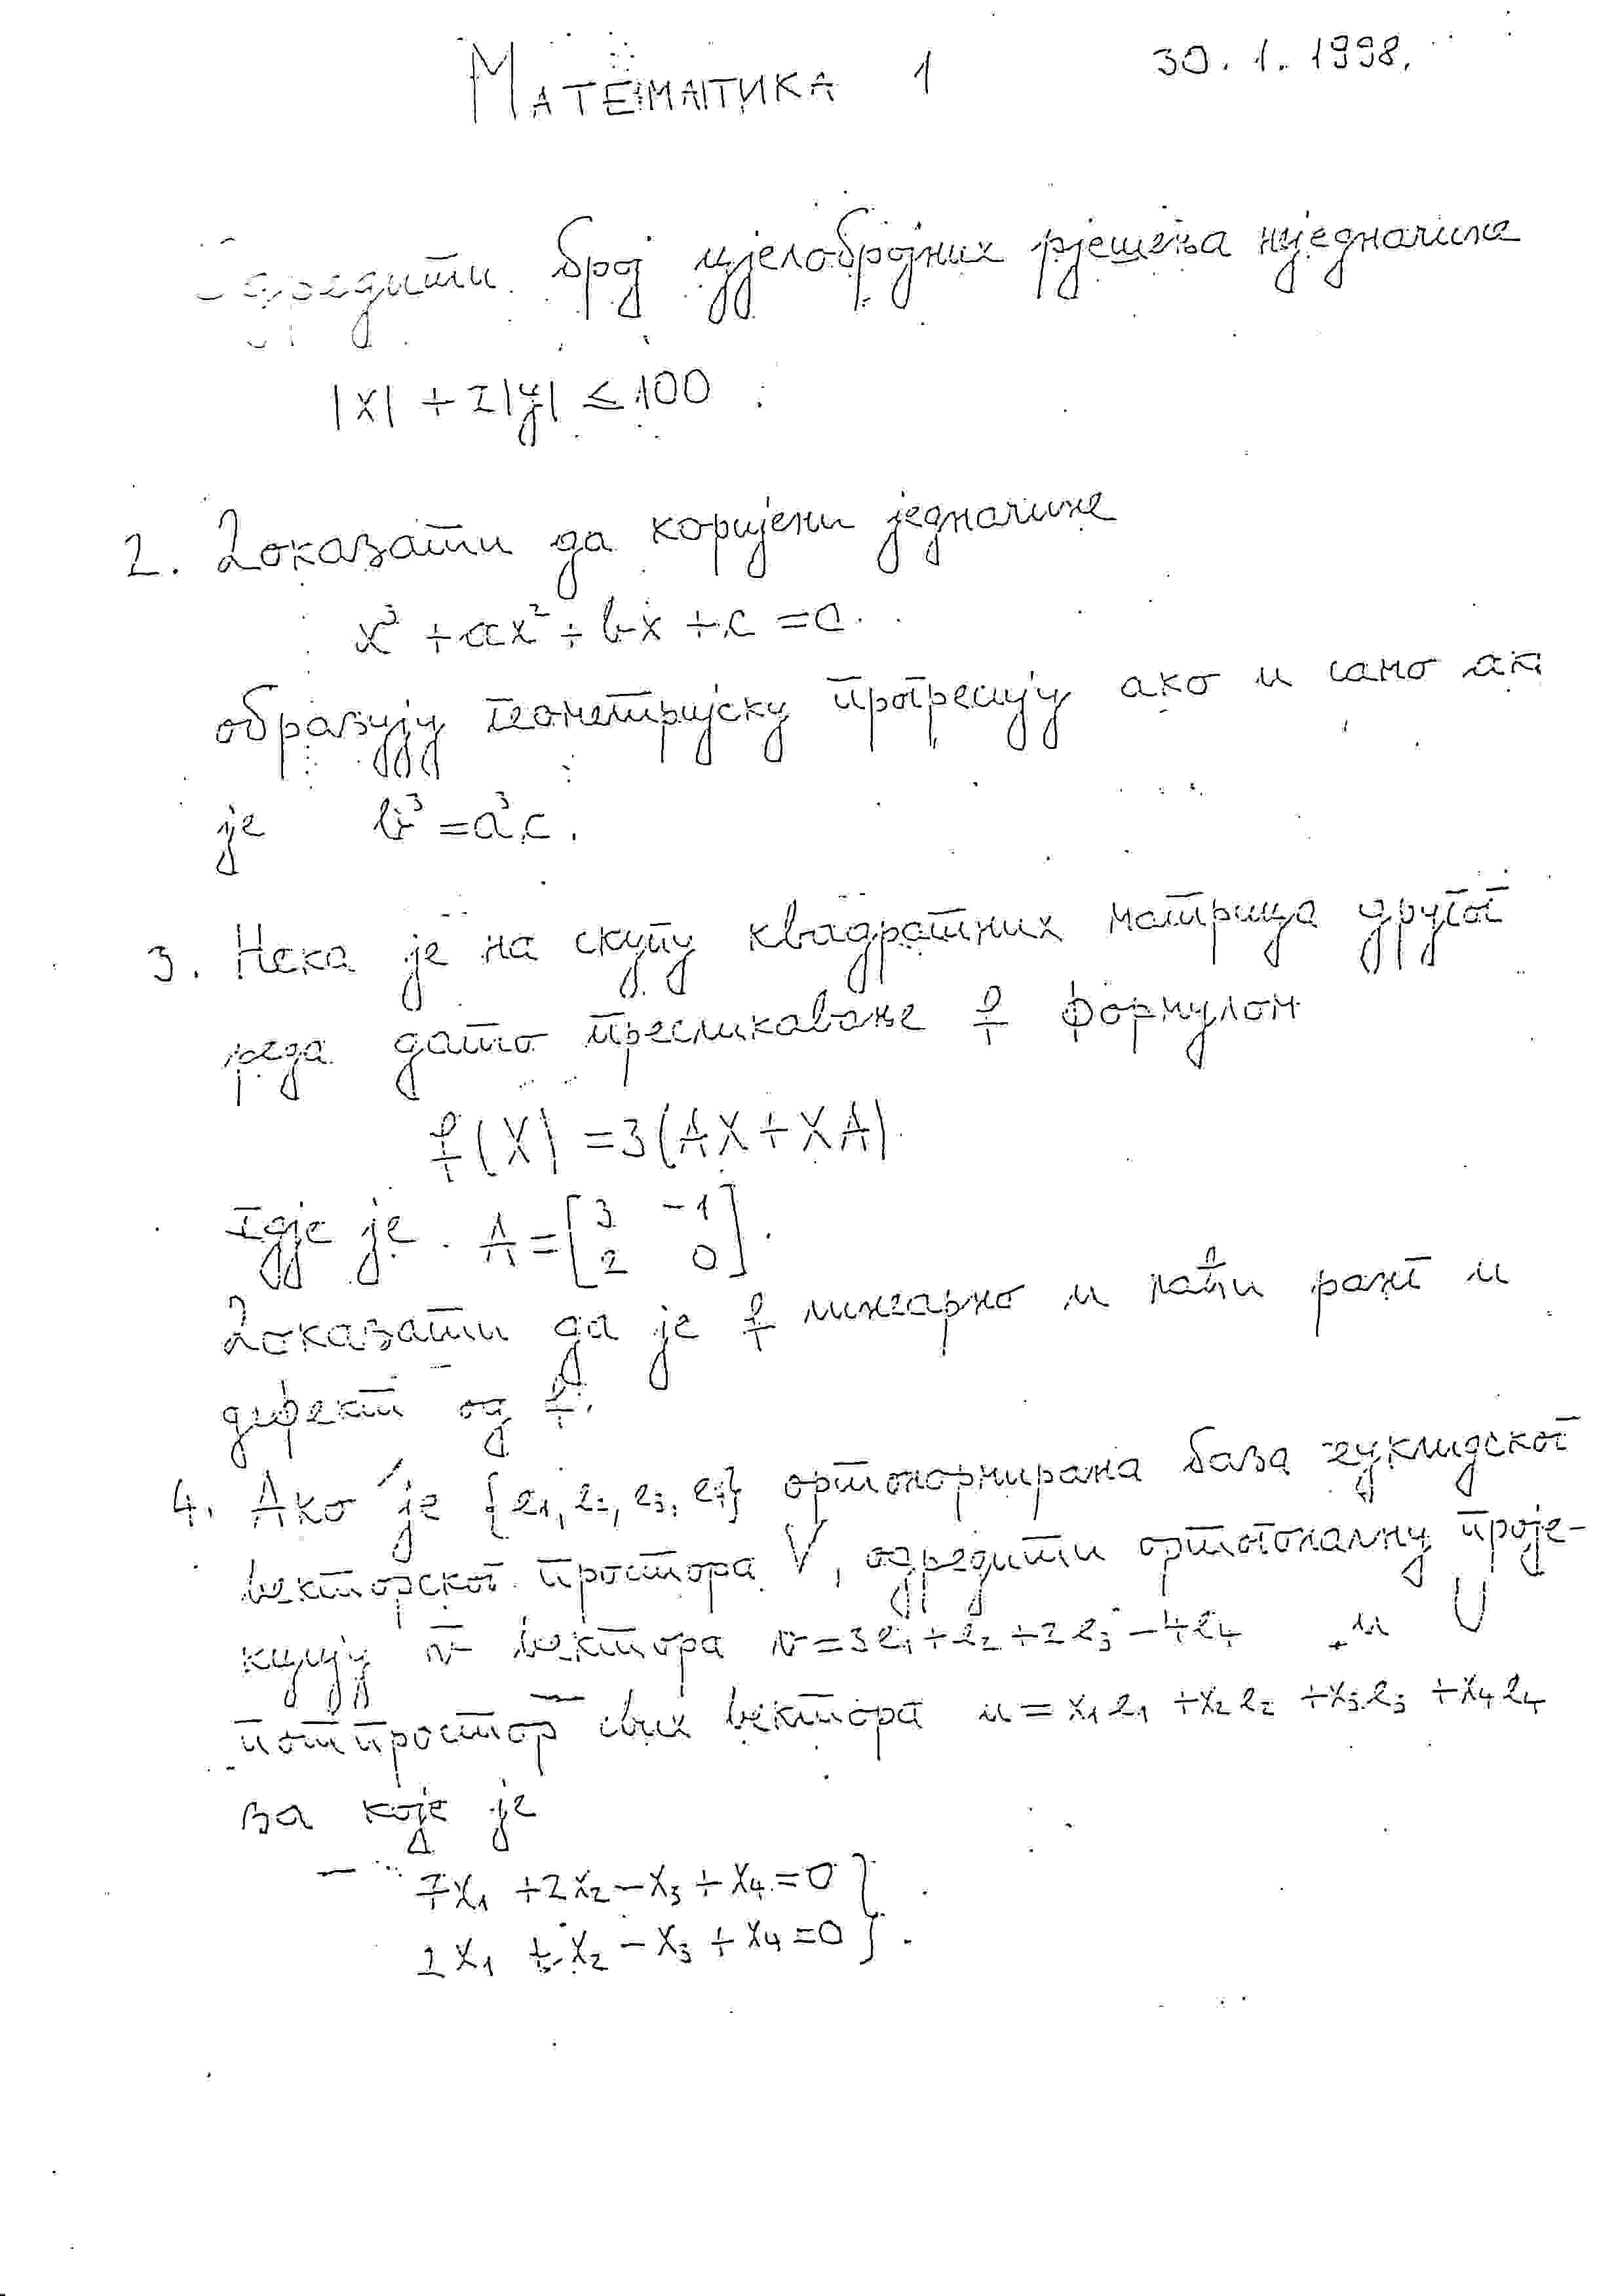 МАТЕМАТИКА 1 30. 1. 1998.
Одредити број цјелобројних рјешења неједначине
|x| + 2|y| ≤ 100
2. Доказати да коријени једначине
x³ + ax² + bx + c = 0.
образују геометријску прогресију ако и само ак
је b³ = a³c.
3. Нека је на скупу квадратних матрица другог
реда дато пресликавање f формулом
f(X) = 3(AX + XA)
гдје је A = [3 -1
2 0].
Доказати да је f линеарно и наћи ранг и
дефект од f.
4. Ако је {e₁, e₂, e₃, e₄} ортонормирана база еуклидског
векторског простора V, одредити ортогоналну проје-
кцију вектора v = 3e₁ + e₂ + 2e₃ - 4e₄ U
потпростор свих вектора u = x₁e₁ + x₂e₂ + x₃e₃ + x₄e₄
за које је
7x₁ + 2x₂ - x₃ + x₄ = 0 }
2x₁ + x₂ - x₃ + x₄ = 0 }.